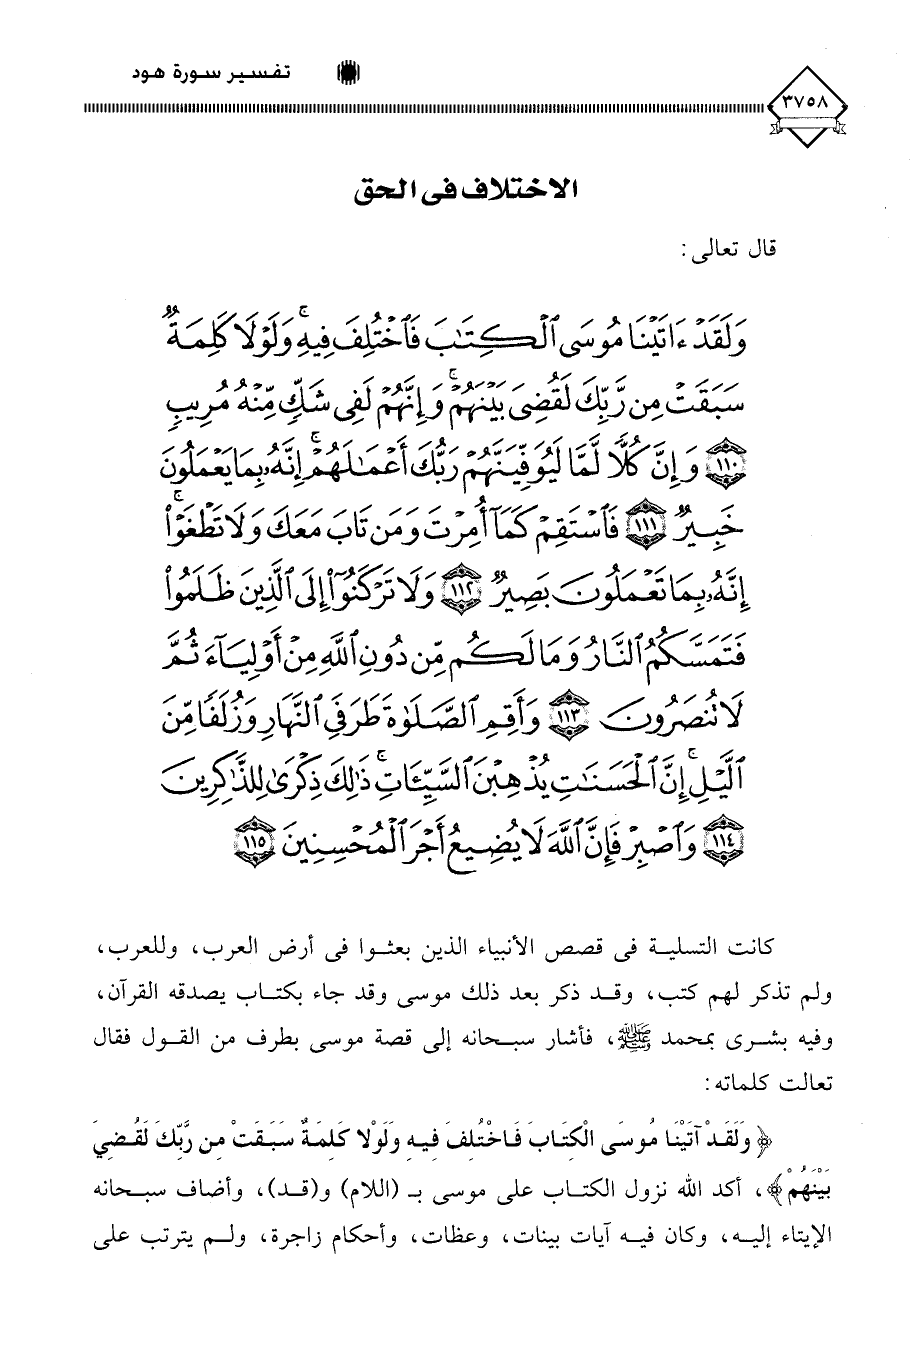 تفسير سورة هود
٣٧٥٨
الاختلاف فى الحق
قال تعالى:
وَلَقَدْ ءَاتَيْنَا مُوسَى ٱلْكِتَٰبَ فَٱخْتُلِفَ فِيهِ ۚ وَلَوْلَا كَلِمَةٌ
سَبَقَتْ مِن رَّبِّكَ لَقُضِىَ بَيْنَهُمْ ۚ وَإِنَّهُمْ لَفِى شَكٍّ مِّنْهُ مُرِيبٍ
١١٠ وَإِنَّ كُلًّا لَّمَّا لَيُوَفِّيَنَّهُمْ رَبُّكَ أَعْمَٰلَهُمْ ۚ إِنَّهُۥ بِمَا يَعْمَلُونَ
خَبِيرٌ ١١١ فَٱسْتَقِمْ كَمَآ أُمِرْتَ وَمَن تَابَ مَعَكَ وَلَا تَطْغَوْا۟ ۚ
إِنَّهُۥ بِمَا تَعْمَلُونَ بَصِيرٌ ١١٢ وَلَا تَرْكَنُوٓا۟ إِلَى ٱلَّذِينَ ظَلَمُوا۟
فَتَمَسَّكُمُ ٱلنَّارُ وَمَا لَكُم مِّن دُونِ ٱللَّهِ مِنْ أَوْلِيَآءَ ثُمَّ
لَا تُنصَرُونَ ١١٣ وَأَقِمِ ٱلصَّلَوٰةَ طَرَفَىِ ٱلنَّهَارِ وَزُلَفًا مِّنَ
ٱلَّيْلِ ۚ إِنَّ ٱلْحَسَنَٰتِ يُذْهِبْنَ ٱلسَّيِّـَٔاتِ ۚ ذَٰلِكَ ذِكْرَىٰ لِلذَّٰكِرِينَ
١١٤ وَٱصْبِرْ فَإِنَّ ٱللَّهَ لَا يُضِيعُ أَجْرَ ٱلْمُحْسِنِينَ ١١٥
كانت التسلية فى قصص الأنبياء الذين بعثوا فى أرض العرب، وللعرب،
ولم تذكر لهم كتب، وقد ذكر بعد ذلك موسى وقد جاء بكتاب يصدقه القرآن،
وفيه بشرى بمحمد ﷺ، فأشار سبحانه إلى قصة موسى بطرف من القول فقال
تعالت كلماته:
﴿وَلَقَدْ آتَيْنَا مُوسَى الْكِتَابَ فَاخْتُلِفَ فِيهِ وَلَوْلا كَلِمَةٌ سَبَقَتْ مِن رَّبِّكَ لَقُضِيَ
بَيْنَهُمْ﴾، أكد الله نزول الكتاب على موسى بـ (اللام) و(قد)، وأضاف سبحانه
الإيتاء إليه، وكان فيه آيات بينات، وعظات، وأحكام زاجرة، ولم يترتب على